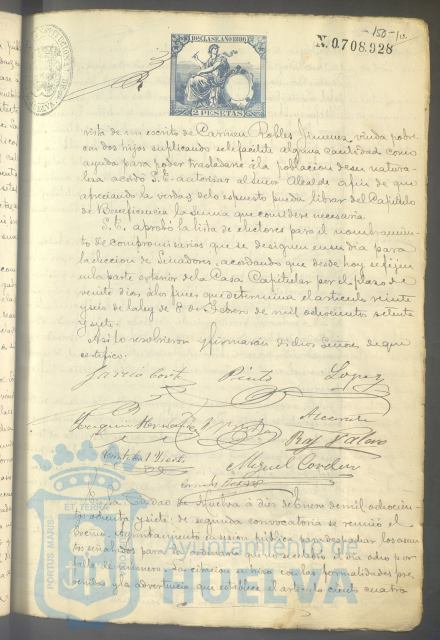 -150-
10ª CLASE. AÑO 1886
N.0.708.928
2 PESETAS
vista de un escrito de Carmen Robles Jimenez, viuda pobre
con dos hijos suplicando se le facilite alguna cantidad como
ayuda para poder trasladarse á la poblacion de su natura-
leza acordó S.E. autorizar al Señor Alcalde á fin de que
apreciando la verdad de lo expuesto pueda librar del Capítulo
de Beneficencia la suma que considere necesaria.
S.E. aprobó la lista de electores para el nombramien-
to de compromisarios que se designen en su dia para
la eleccion de Senadores, acordando que desde hoy se fijen
en la parte exterior de la Casa Capitular por el plazo de
veinte dias á los fines que determina el artículo veinte
y seis de la ley de 8 de Febrero de mil ochocientos setenta
y siete.
Asi lo resolvieron y firmarán dichos Señores de que
certifico.
Garcia Pinto Lopez
Joaquin
Miguel
En la Ciudad de Huelva á diez de Enero de mil ochocien-
tos ochenta y siete: de segunda convocatoria se reunió el
Ayuntamiento en sesion pública para despachar los asun-
tos señalados para la ordinaria que no se celebró el dia ocho por
falta de número. La citacion se hizo con las formalidades pre-
venidas y la advertencia que establece el artículo ciento cuatro
PORTUS MARIS
ET TERRAE
Ayuntamiento de
HUELVA